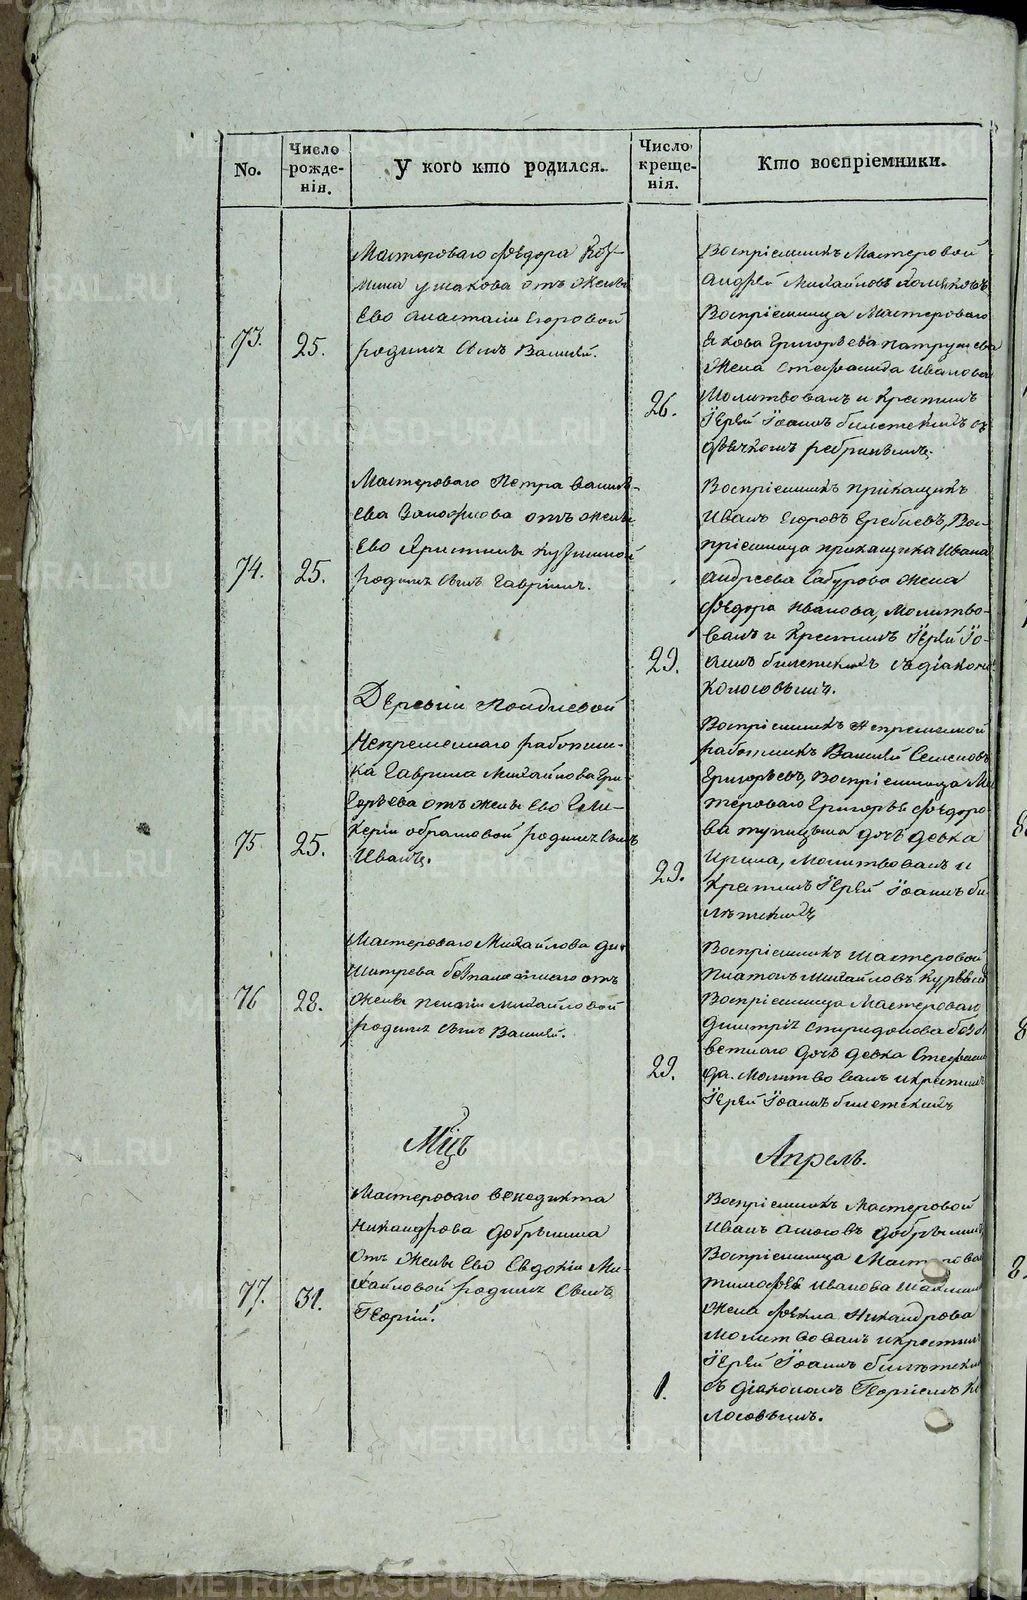 No.
Число рожде-нія.
У кого кто родился.
Число креще-нія.
Кто воспріемники.
73.
25.
Мастероваго Ѳедора Коз-
мина Ушакова отъ жены
Ево Анастасіи Егоровой
родился сынъ Василій.
26.
Воспріемникъ Мастеровой
Андрей Михайловъ
Воспріемница Мастероваго
Якова Григорьева Патрушева
жена Степанида Иванова
Молитвовалъ и крестилъ
Іерей Іоаннъ Билетскихъ съ
дьячкомъ Ребринымъ.
74.
25.
Мастероваго Петра Василь-
ева отъ жены
Ево Христины Кузминой
родился сынъ Гавріилъ.
29.
Воспріемникъ прикащикъ
Иванъ Егоровъ Вос-
пріемница прикащика Ивана
Андреева Сабурова жена
Ѳедора Иванова, Молитво-
валъ и крестилъ Іерей Іо-
аннъ Билетскихъ съ діакономъ
Колосовымъ.
Деревни
75.
25.
Непременнаго работни-
ка Гаврила Михайлова Гри-
горьева отъ жены Ево Гли-
керіи Абрамовой родился сынъ
Иванъ.
29.
Воспріемникъ Непременной
работникъ Василей Семеновъ
Григорьевъ, Воспріемница Ма-
стероваго Григорья Ѳедоро-
ва дочь девка
Ирина, Молитвовалъ и
крестилъ Іерей Іоаннъ Би-
летскихъ
76
28.
Мастероваго Михайлова Ди-
митрева отъ
жены Михайловой
родился сынъ Василей.
29.
Воспріемникъ Мастеровой
Платонъ Михайловъ
Воспріемница Мастероваго
Димитрія Спиридонова
дочь девка Степани-
да. Молитвовалъ и крестилъ
Іерей Іоаннъ Билетскихъ
Мцъ
Апрель.
77.
31.
Мастероваго Венедикта
Никандрова Добрынина
отъ жены Ево Евдокіи Ми-
хайловой родился сынъ
Георгій.
1.
Воспріемникъ Мастеровой
Иванъ Добрынинъ
Воспріемница Мастерова
Тимофея Иванова
жена Ѳекла Никандрова
Молитвовалъ и крестилъ
Іерей Іоаннъ Билетских
съ діакономъ Георгіемъ Ко
лосовымъ.
METRIKI.GASO-URAL.RU